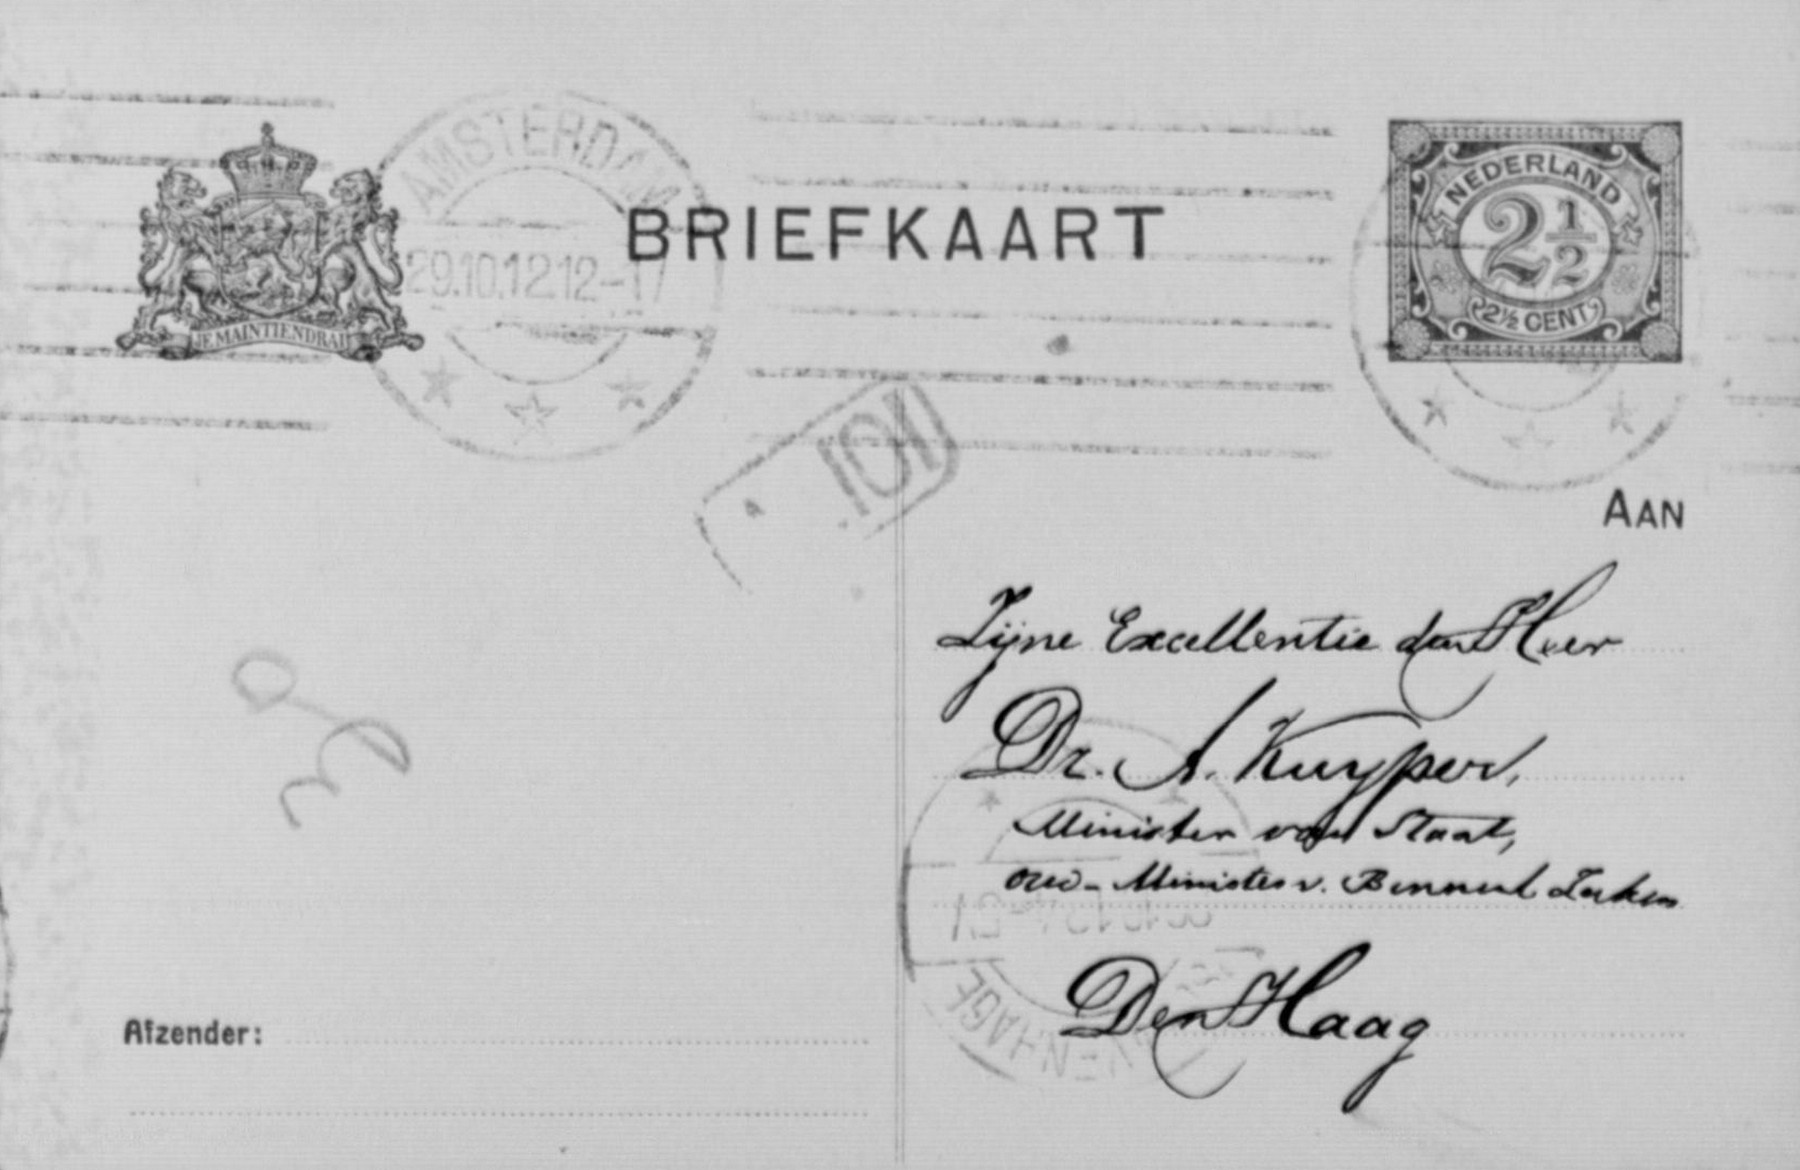 AMSTERDAM
29.10.12 12-1V
BRIEFKAART
NEDERLAND
2 1/2
2½ CENT
JE MAINTIENDRAI
101
AAN
Zijne Excellentie den Heer
Dr. A. Kuyper,
Minister van Staat,
oud-Minister v. Binnenl. Zaken
Den Haag
VENHAGE
Afzender: